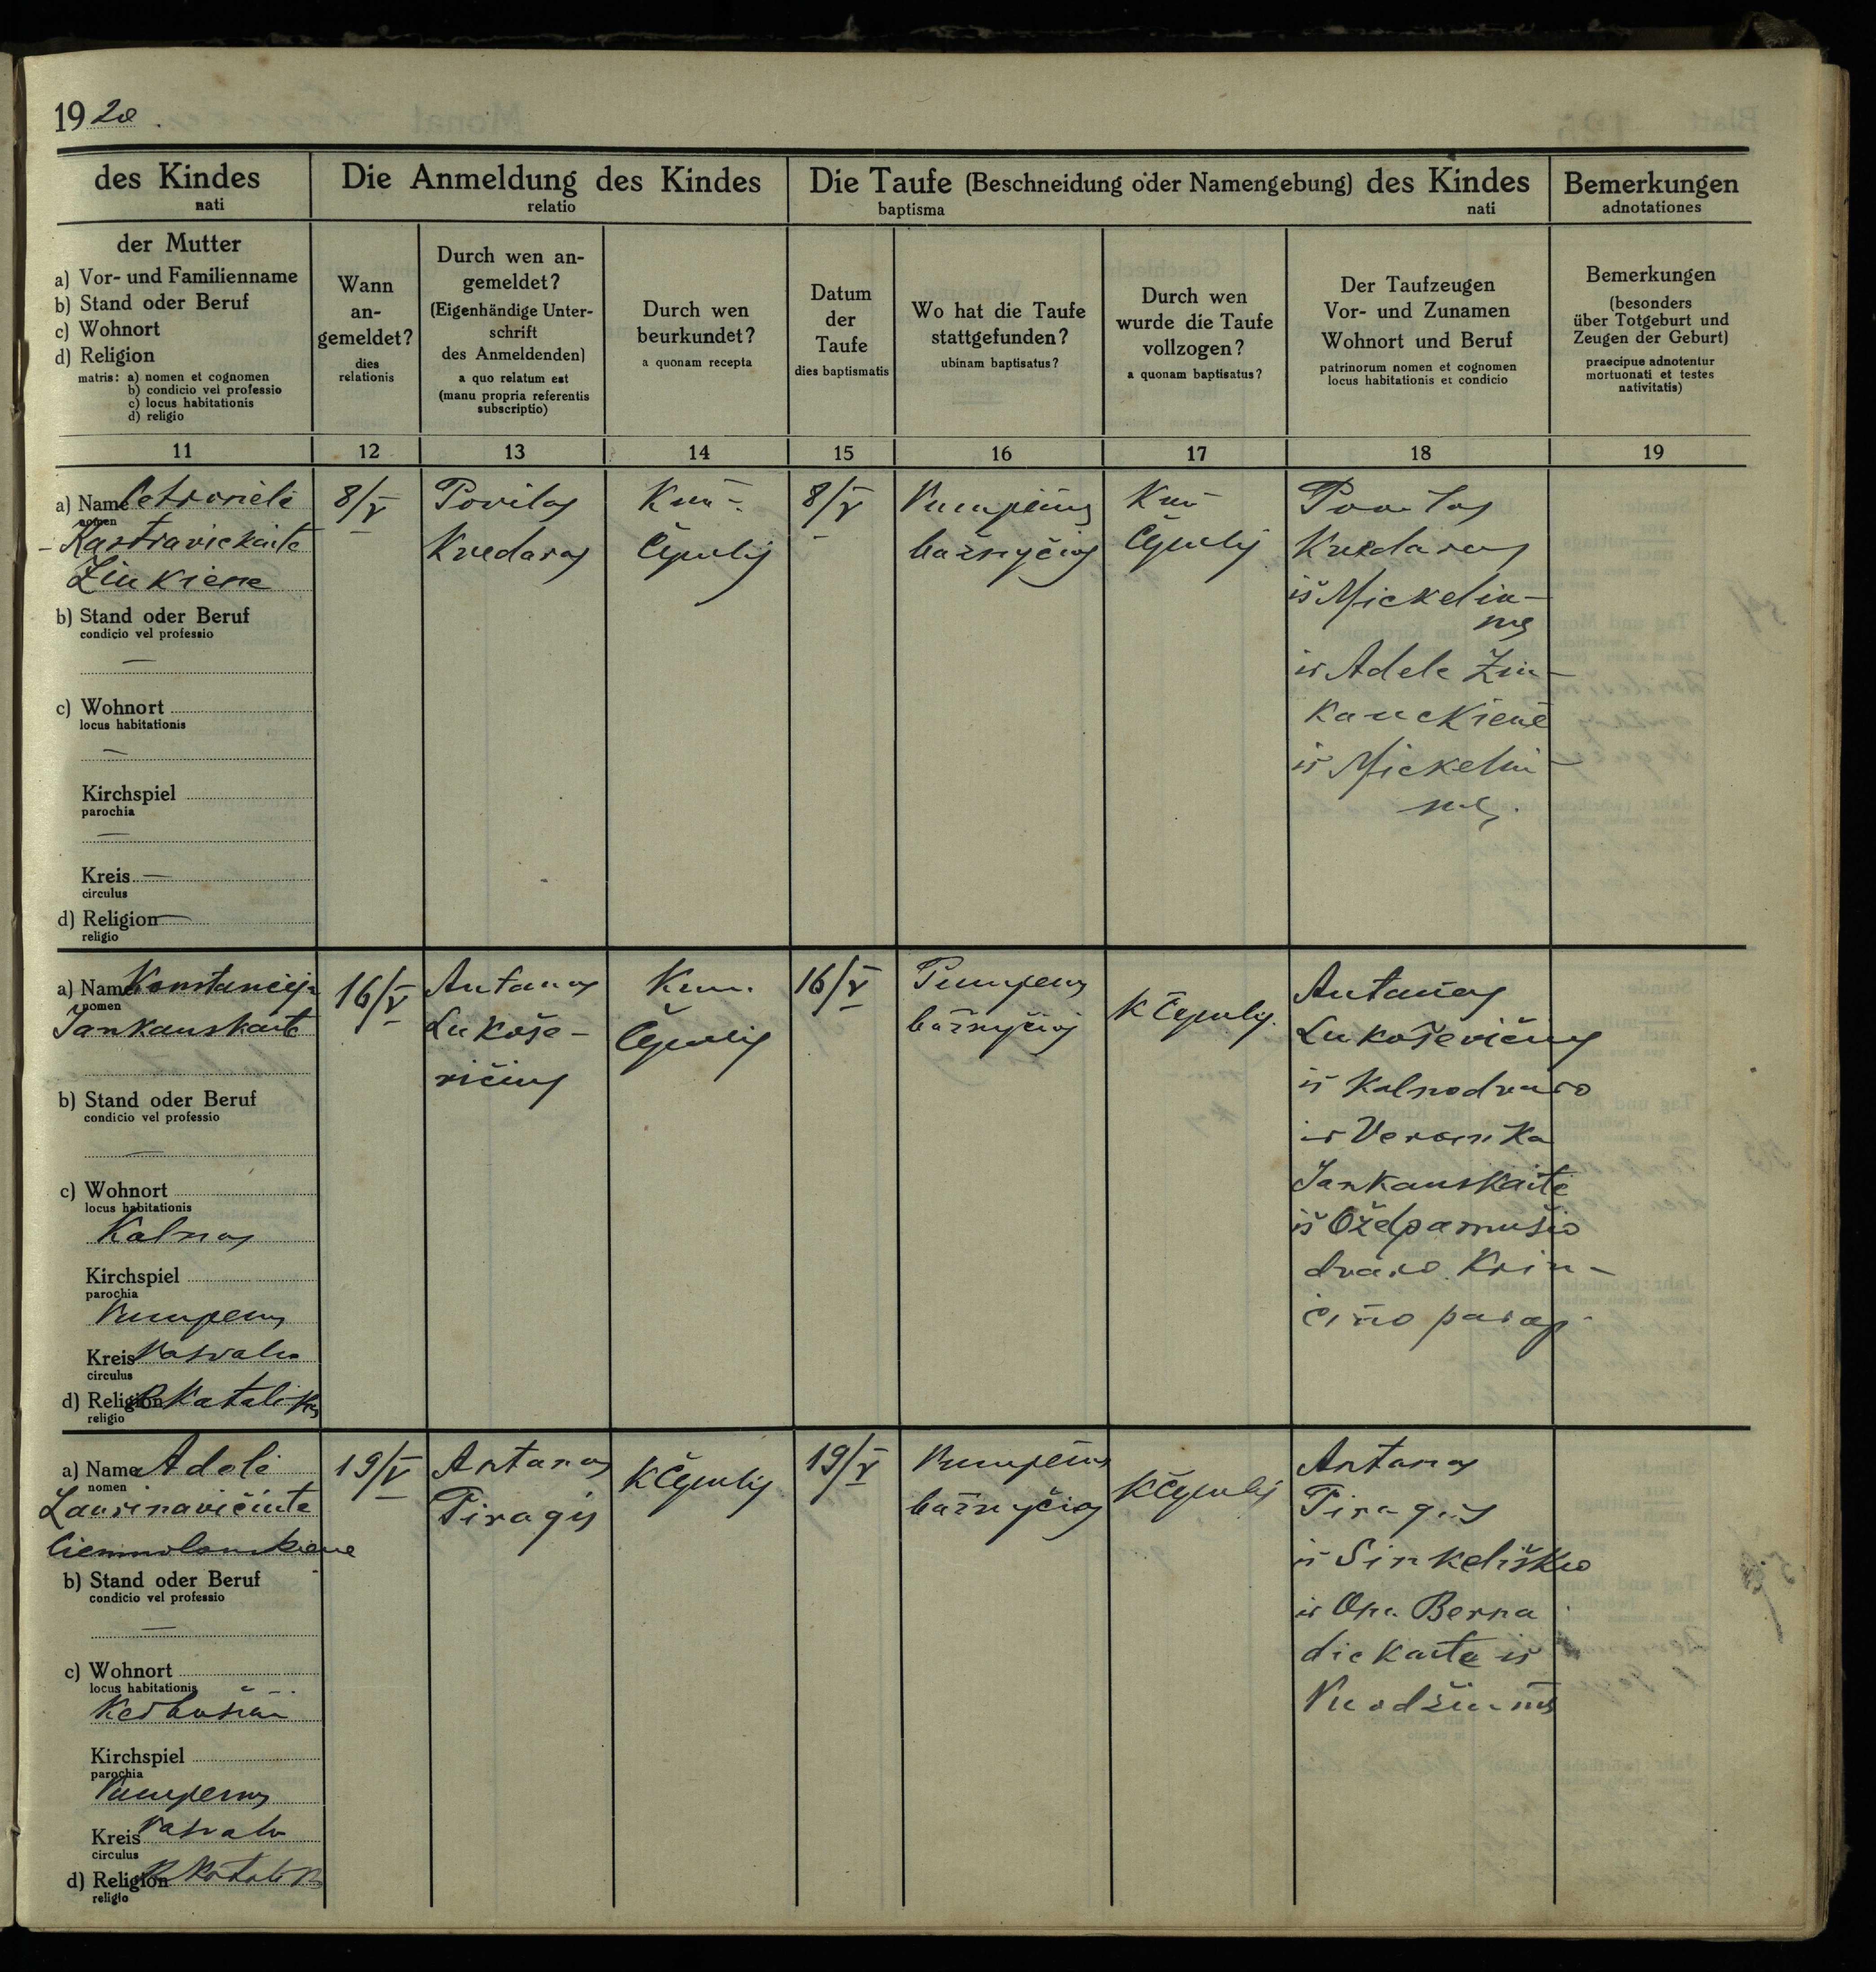 1920
des Kindes
nati
Die Anmeldung des Kindes
relatio
Die Taufe (Beschneidung oder Namengebung) des Kindes
baptisma nati
Bemerkungen
adnotationes
der Mutter
a) Vor- und Familienname
b) Stand oder Beruf
c) Wohnort
d) Religion
matris: a) nomen et cognomen
b) condicio vel professio
c) locus habitationis
d) religio
Wann
an-
gemeldet?
dies
relationis
Durch wen an-
gemeldet?
(Eigenhändige Unter-
schrift
des Anmeldenden)
a quo relatum est
(manu propria referentis
subscriptio)
Durch wen
beurkundet?
a quonam recepta
Datum
der
Taufe
dies baptismatis
Wo hat die Taufe
stattgefunden?
ubinam baptisatus?
Durch wen
wurde die Taufe
vollzogen?
a quonam baptisatus?
Der Taufzeugen
Vor- und Zunamen
Wohnort und Beruf
patrinorum nomen et cognomen
locus habitationis et condicio
Bemerkungen
(besonders
über Totgeburt und
Zeugen der Geburt)
praecipue adnotentur
mortuonati et testes
nativitatis)
11 12 13 14 15 16 17 18 19
a) Name Petronėlė
nomen
Kastravickaitė
Zinkienė
b) Stand oder Beruf
condicio vel professio
—
c) Wohnort
locus habitationis
—
Kirchspiel
parochia
—
Kreis —
circulus
d) Religion —
religio
8/V
Povilas
Kvedaras
Kun.
Čepulis
8/V
Pumpėnų
bažnyčioj
Kun
Čepulis
Povilas
Kvedaras
iš Mickeliu-
nų
ir Adelė Zin-
kauckienė
iš Mickeliu-
nų.
a) Name Konstancija
nomen
Jankauskaitė
b) Stand oder Beruf
condicio vel professio
—
c) Wohnort
locus habitationis
Kalnas
Kirchspiel
parochia
Pumpėnų
Kreis Pasvalio
circulus
d) Religion R Katalikų
religio
16/V
Antanas
Lukoše-
vičius
Kun.
Čepulis
16/V
Pumpėnų
bažnyčioj
K Čepulis.
Antanas
Lukoševičius
iš Kalnodvaro
ir Veronika
Jankauskaitė
iš
dvaro. Krin-
čino parap.
a) Name Adelė
nomen
Laurinavičiutė
b) Stand oder Beruf
condicio vel professio
—
c) Wohnort
locus habitationis
Kirchspiel
parochia
Pumpėnų
Kreis Pasvalio
circulus
d) Religion R Katalikų
religio
19/V
Antanas
Piragis
K Čepulis
19/V
Pumpėnų
bažnyčioj
K Čepulis
Antanas
Piragis
iš Sinkeliškio
ir Ona Berna
dickaitė iš
Puodžiunų